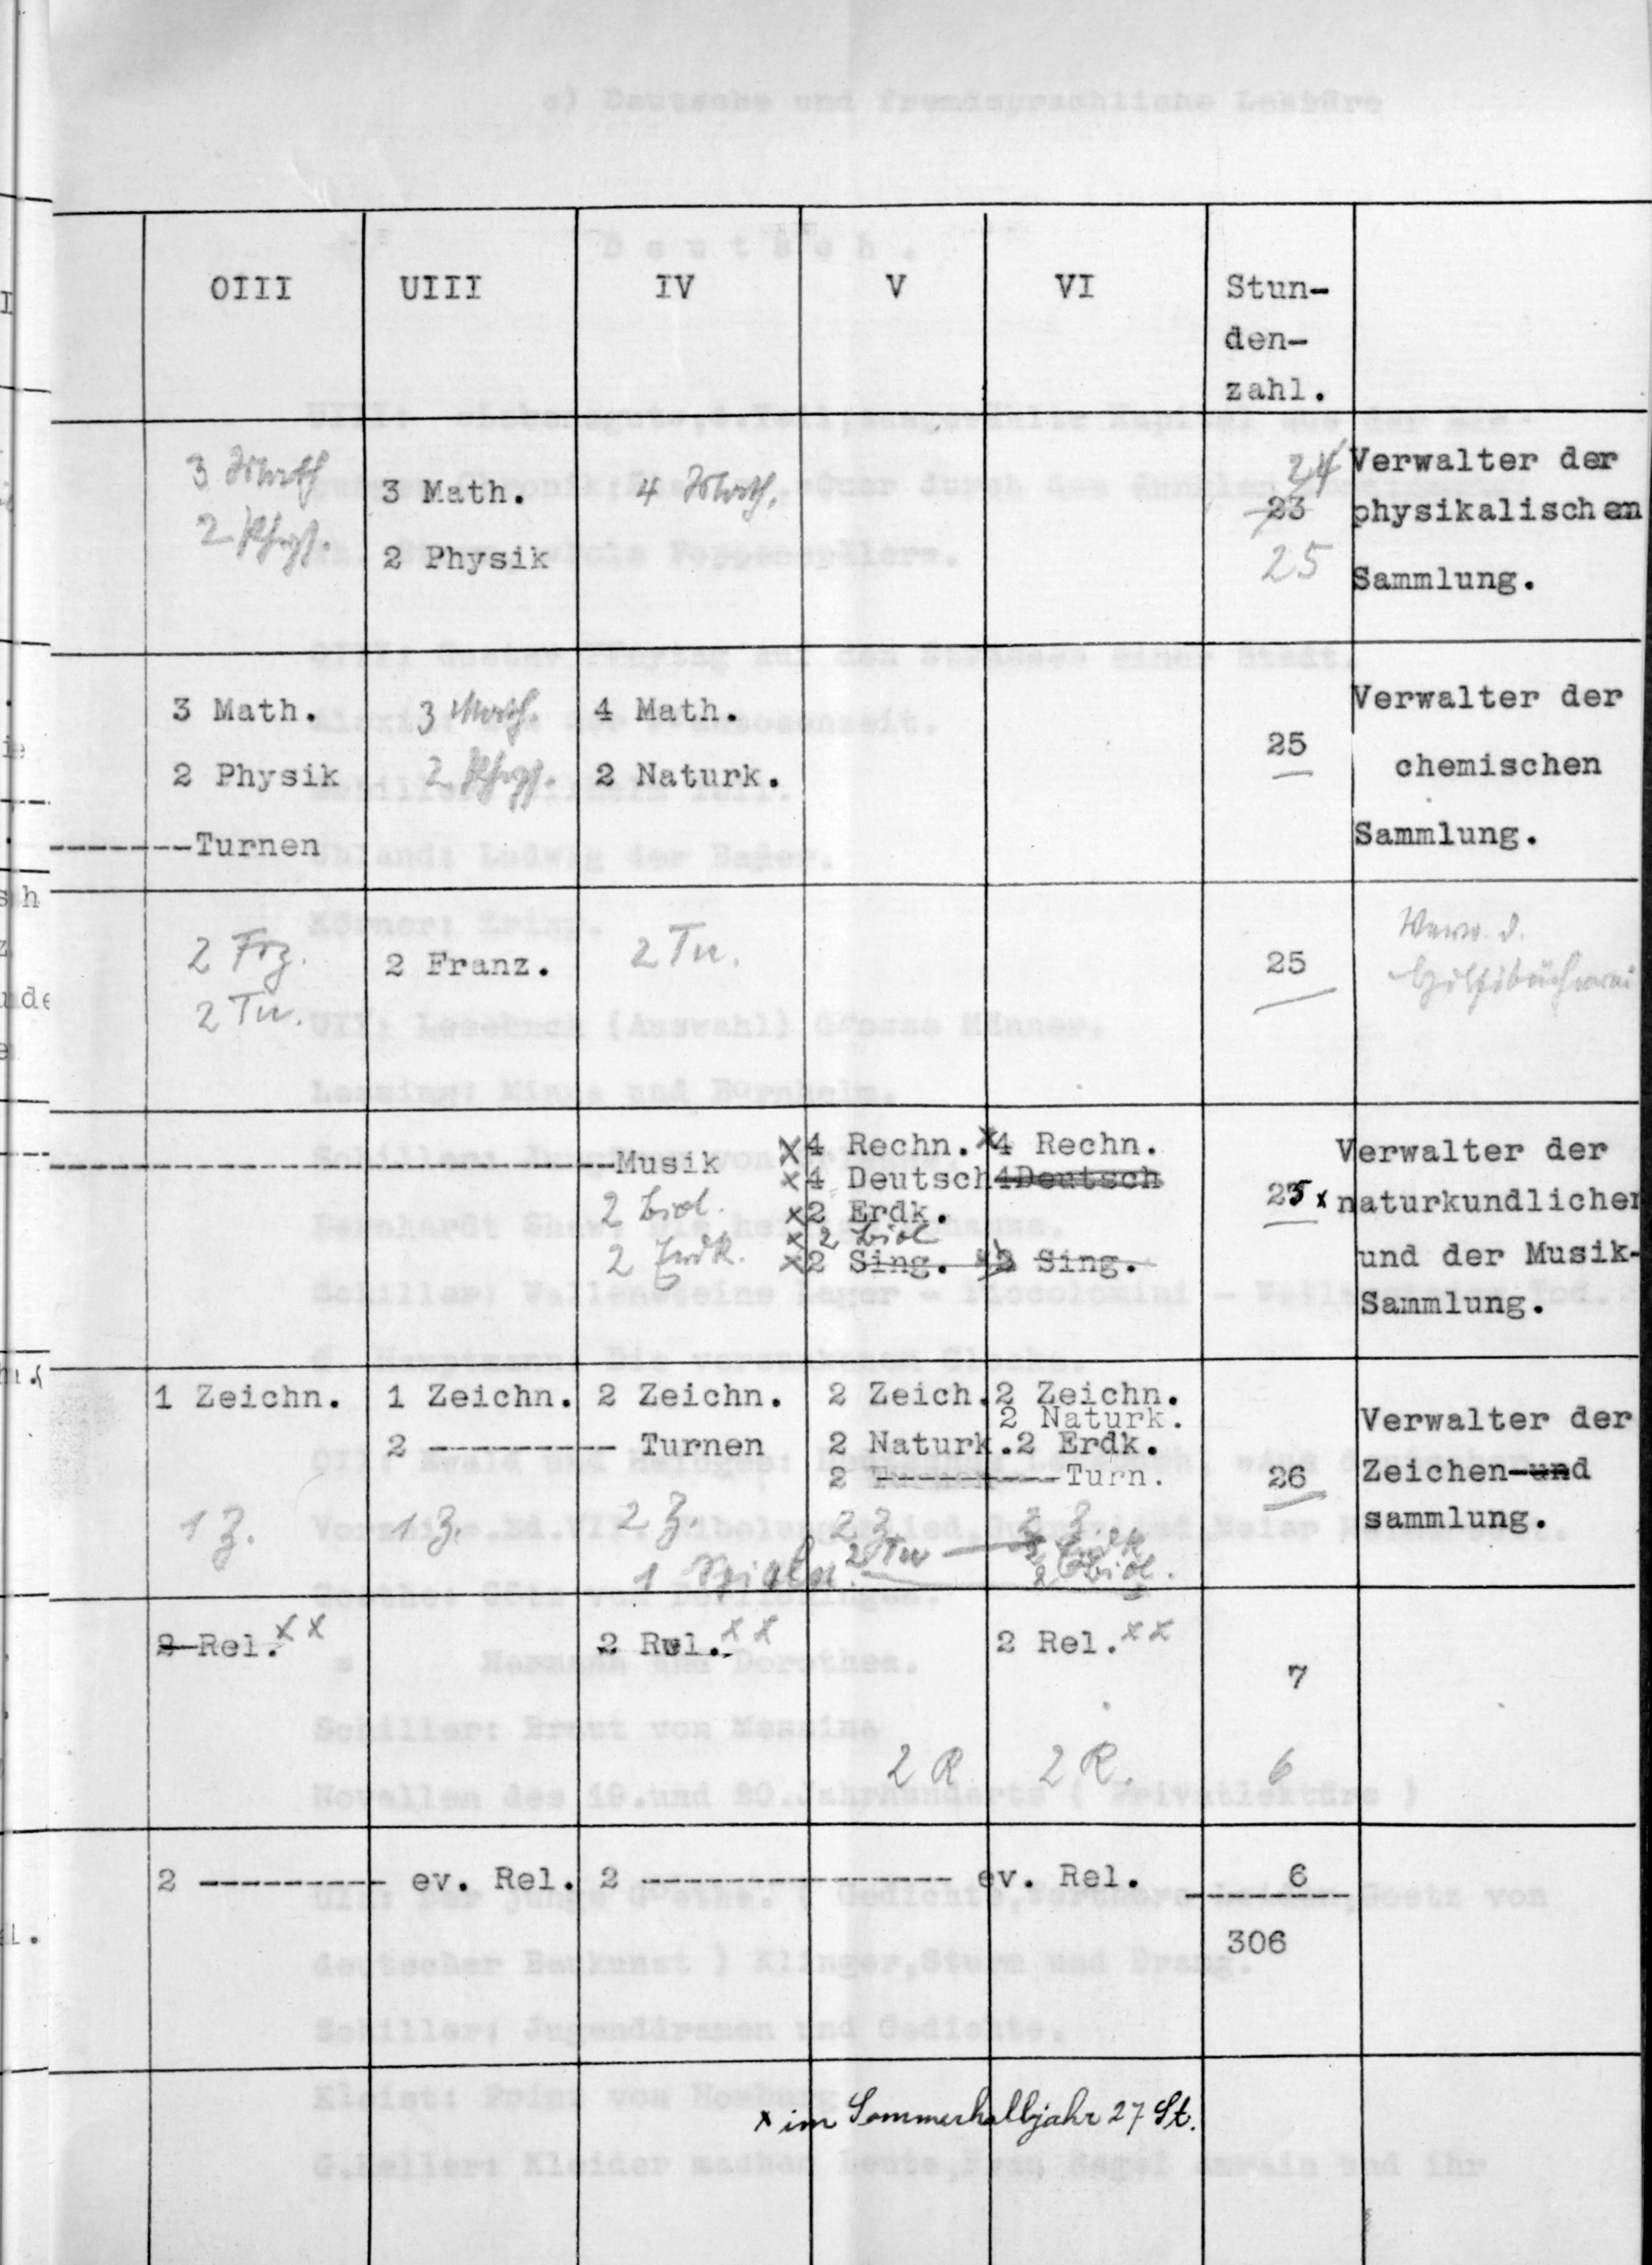 OIII UIII IV V VI Stun-
den-
zahl.
3 Math 24 Verwalter der
3 Math. 4 Math. 23 physikalischen
2 Phys.
2 Physik 25 Sammlung.
3 Math. 3 Math. 4 Math. Verwalter der
25
2 Physik 2 Phys. 2 Naturk. chemischen
-------Turnen Sammlung.
2 Frz. 2 Franz. 2 Tu. 25 Verw. d.
2 Tu. Hilfsbücherei
---------------------------Musik x4 Rechn. x4 Rechn. Verwalter der
x4 Deutsch 4 Deutsch
2 Biol. x2 Erdk. 25 x naturkundlichen
x 2 Biol
2 Erdk. x2 Sing. 2 Sing. und der Musik-
Sammlung.
1 Zeichn. 1 Zeichn. 2 Zeichn. 2 Zeich. 2 Zeichn.
2 Naturk. Verwalter der
2 --------- Turnen 2 Naturk. 2 Erdk.
2 Turnen --------Turn. 26 Zeichen-und
1 Z. 1 Z. 2 Z. 2 Z 2 Z. sammlung.
2 Tu — 2 Erdk
1 Spieln. 2 Biol.
2 Rel. x x 2 Rel. x x 2 Rel. x x
7
2 R 2 R. 6
2 --------- ev. Rel. 2 --------------- ev. Rel. 6
306
x im Sommerhalbjahr 27 St.